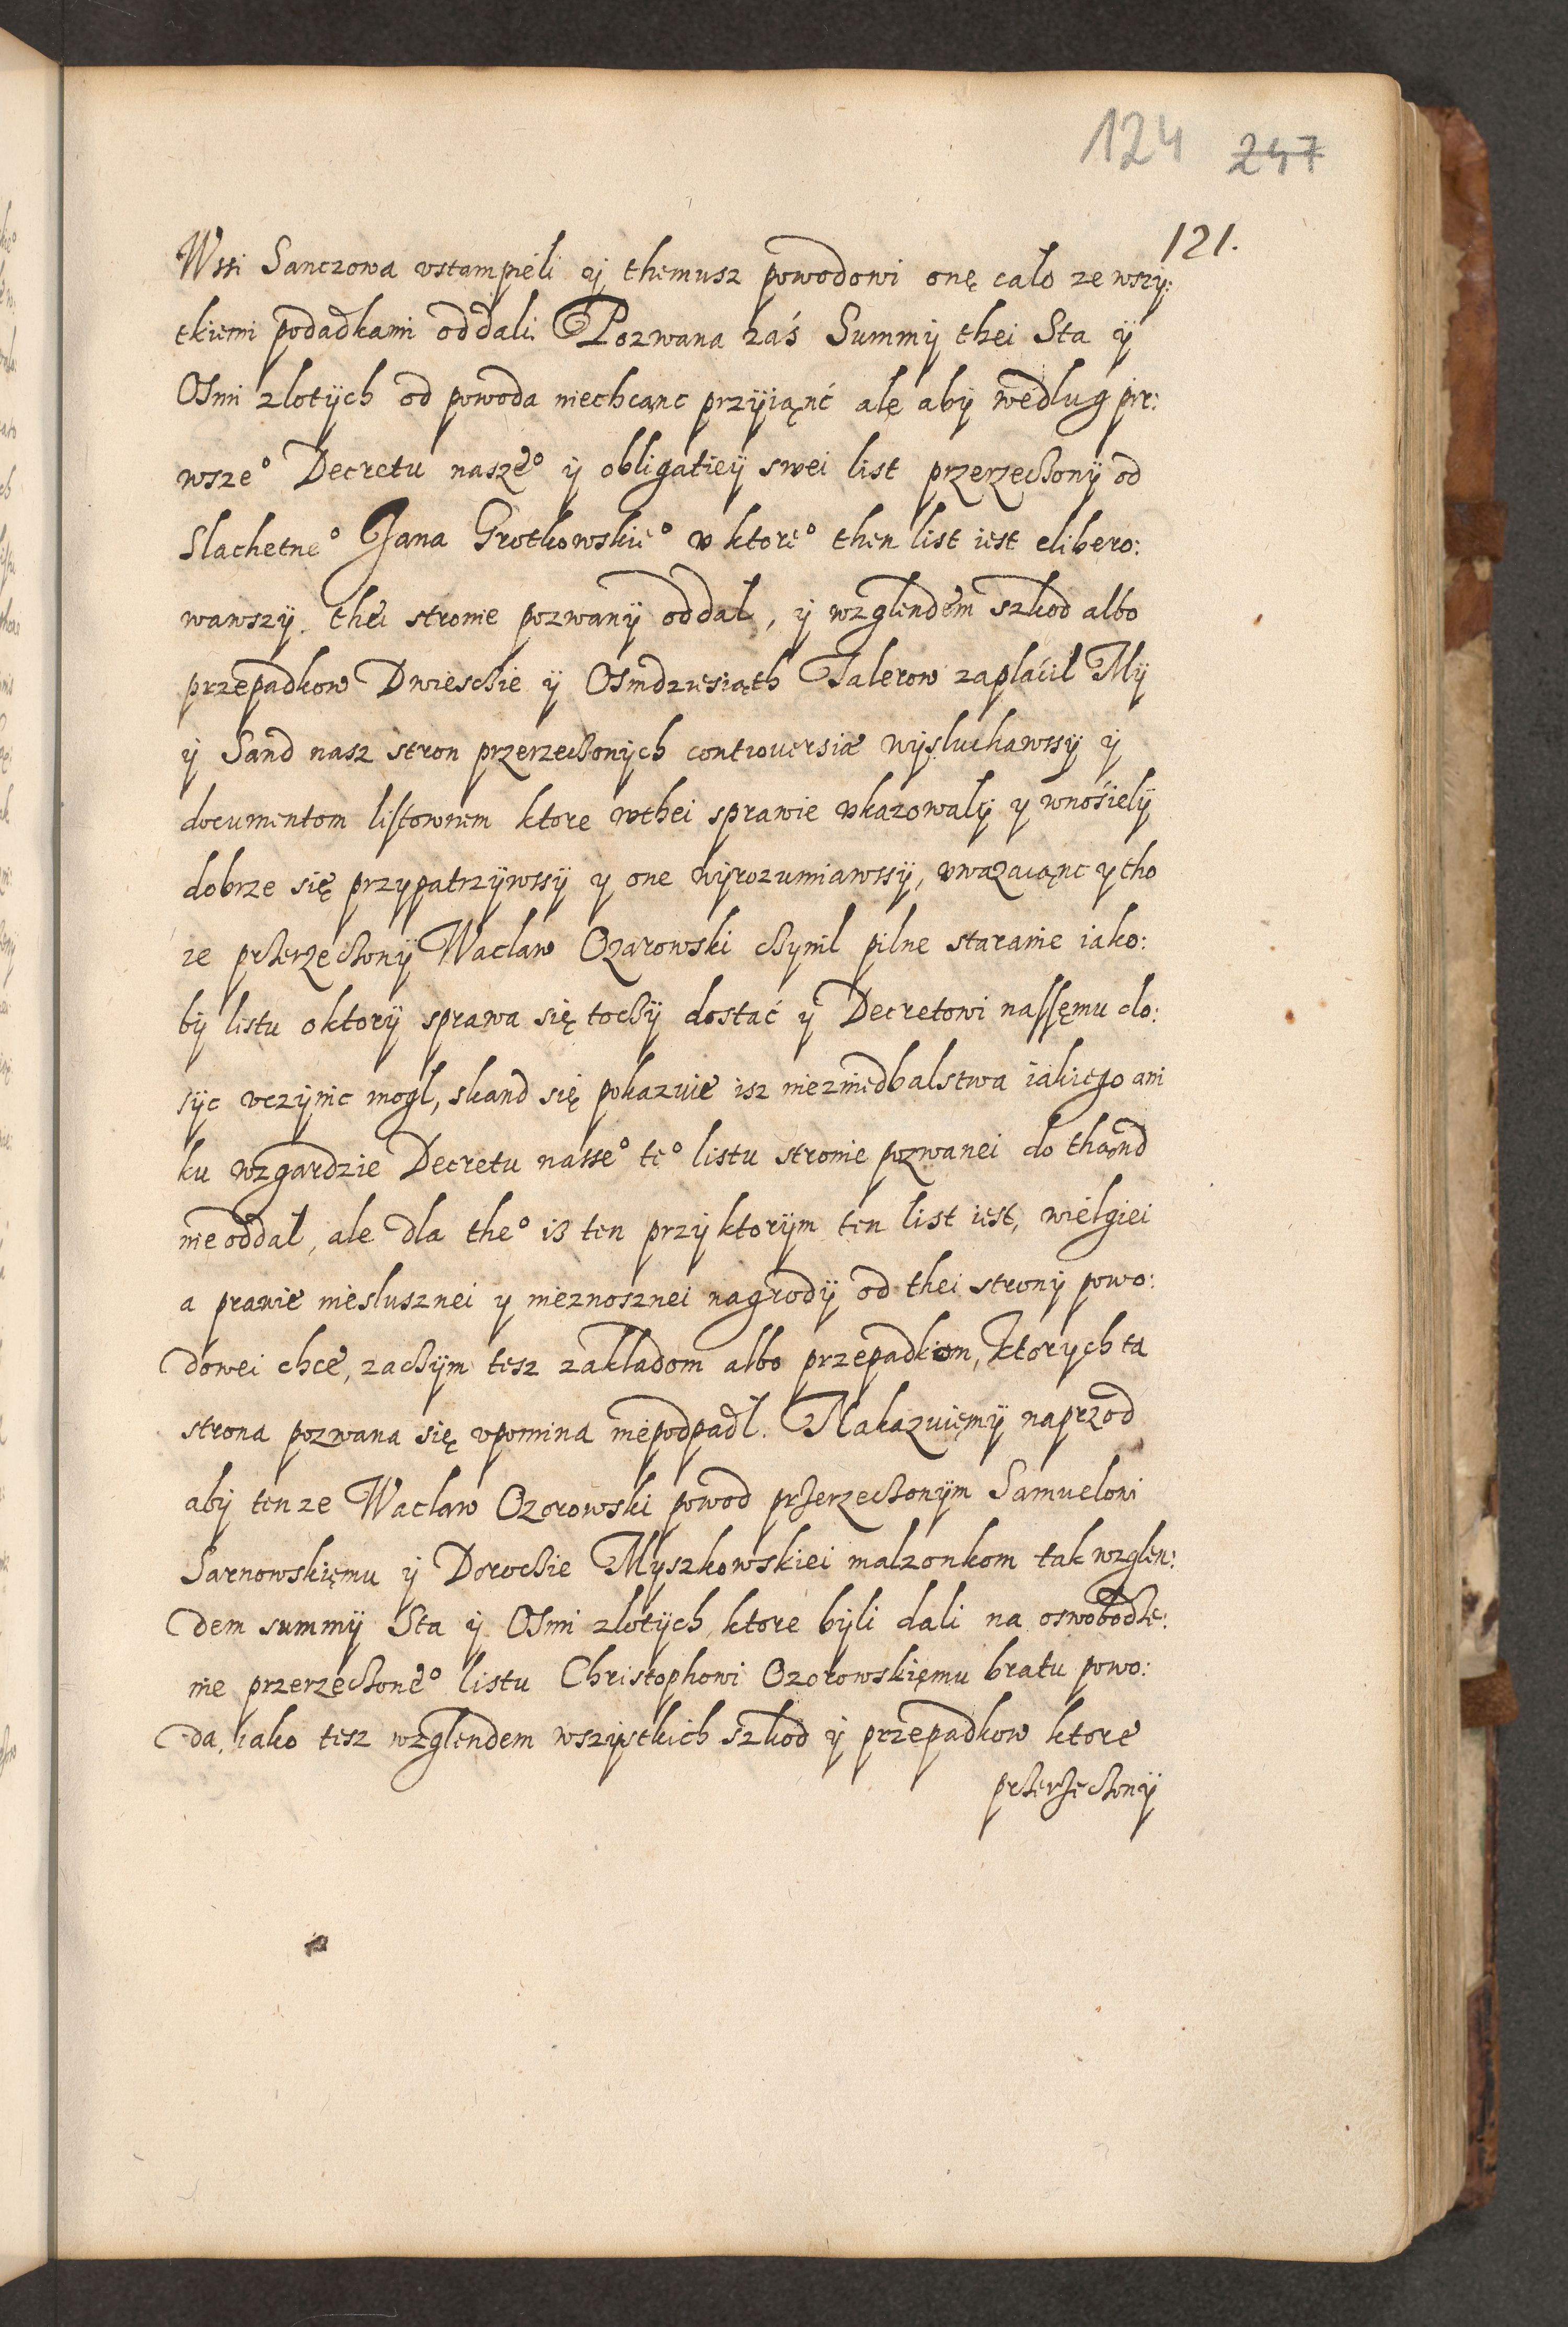 124 247
121.
Wssi Sanczowa vstampieli ÿ themusz powodowi onę calo ze wszÿ:
tkiemi podadkami oddali. Pozwana zaś Summÿ thei Sta ÿ
Osmi zlotÿch od powoda niechcąnc przÿiąnć ale abÿ wedlug pir:
wsze° Decretu nasze° ÿ obligatieÿ swei list przerzeczonÿ od
Slachetne° Jana Grotkowskie° v ktore° then list iest elibero:
wawszÿ thei stronie pozwanÿ oddal, ÿ wzglendem szkod albo
przepadkow Dwieschie ÿ Osmdziesiąth Talerow zaplácil Mÿ
ÿ Sand nasz stron przerzeczonÿch controuersiæ wÿsluchawssÿ ÿ
documentom listownem ktore wthei sprawie vkazowalÿ y wnosielÿ
dobrze się przypatrzÿwssÿ y one wÿrozumiawssÿ, vwazaiąnc y tho
ze przerzeczonÿ Waclaw Ozarowski czynil pilne staranie iako:
bÿ listu o ktorÿ sprawa się toczÿ dostać ÿ Decretowi nassęmu do:
sÿc vczÿnic mogl, skand się pokazuie isz niezniedbalstwa iakiego ani
ku wzgardzie Decretu nasse° te° listu stronie pozwanei do thąnd
nie oddal, ale dla the° iß ten przÿ ktorÿm ten list iest, wielgiei
a prawie nieslusznei y nieznosznei nagrodÿ od thei stronÿ powo:
dowei chce, zaczÿm tesz zakladom albo przepadkom, ktorych ta
strona pozwana się vpomina niepodpadl. Nakazuięmÿ naprzod
abÿ tenze Waclaw Ozorowski powod przerzeczonÿm Samuelowi
Sarnowskięmu ÿ Dorochie Myszkowskiei malzonkom tak wzglen:
dem summÿ Sta ÿ Osmi zlotÿch, ktore bÿli dali na oswobodze:
nie przerzeczone° listu Christophowi Ozorowskięmu bratu powo:
da, iako tesz wzglendem wszÿstkich szkod ÿ przepadkow ktore
przerzeczonÿ